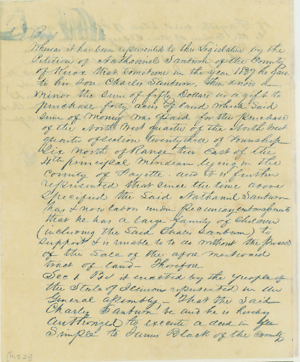 Whereas it has been represented to this Legislature by the
Petition of Nathaniel Sanburn of the County
of Knox that sometime in the year 1839 he gave
to his son Charles Sanburn, then being a
minor the sum of fifty Dollars as a gift to
purchase forty acres of land which said
sum of money was paid for the purchase
of the North West quarter of the North West
quarter of section twenty three of Township
Six North of Range ten East of the
4th principal Meridian lying in the
County of and it is further
represented that since the time above
specified the said Nathaniel Sanburn
has
that he has a large family of Children
(including the said Charles Sanburn) to
support & is unable to do without the proceeds
of the sale of the afore mentioned
tract of land - Therefore
Sec 1 Be it enacted by the people of
the State of Illinois represented in the
General Assembly - That the said
Charles Sanburn be and he is hereby
authorized to execute a deed in fee
Simple to Black of the County